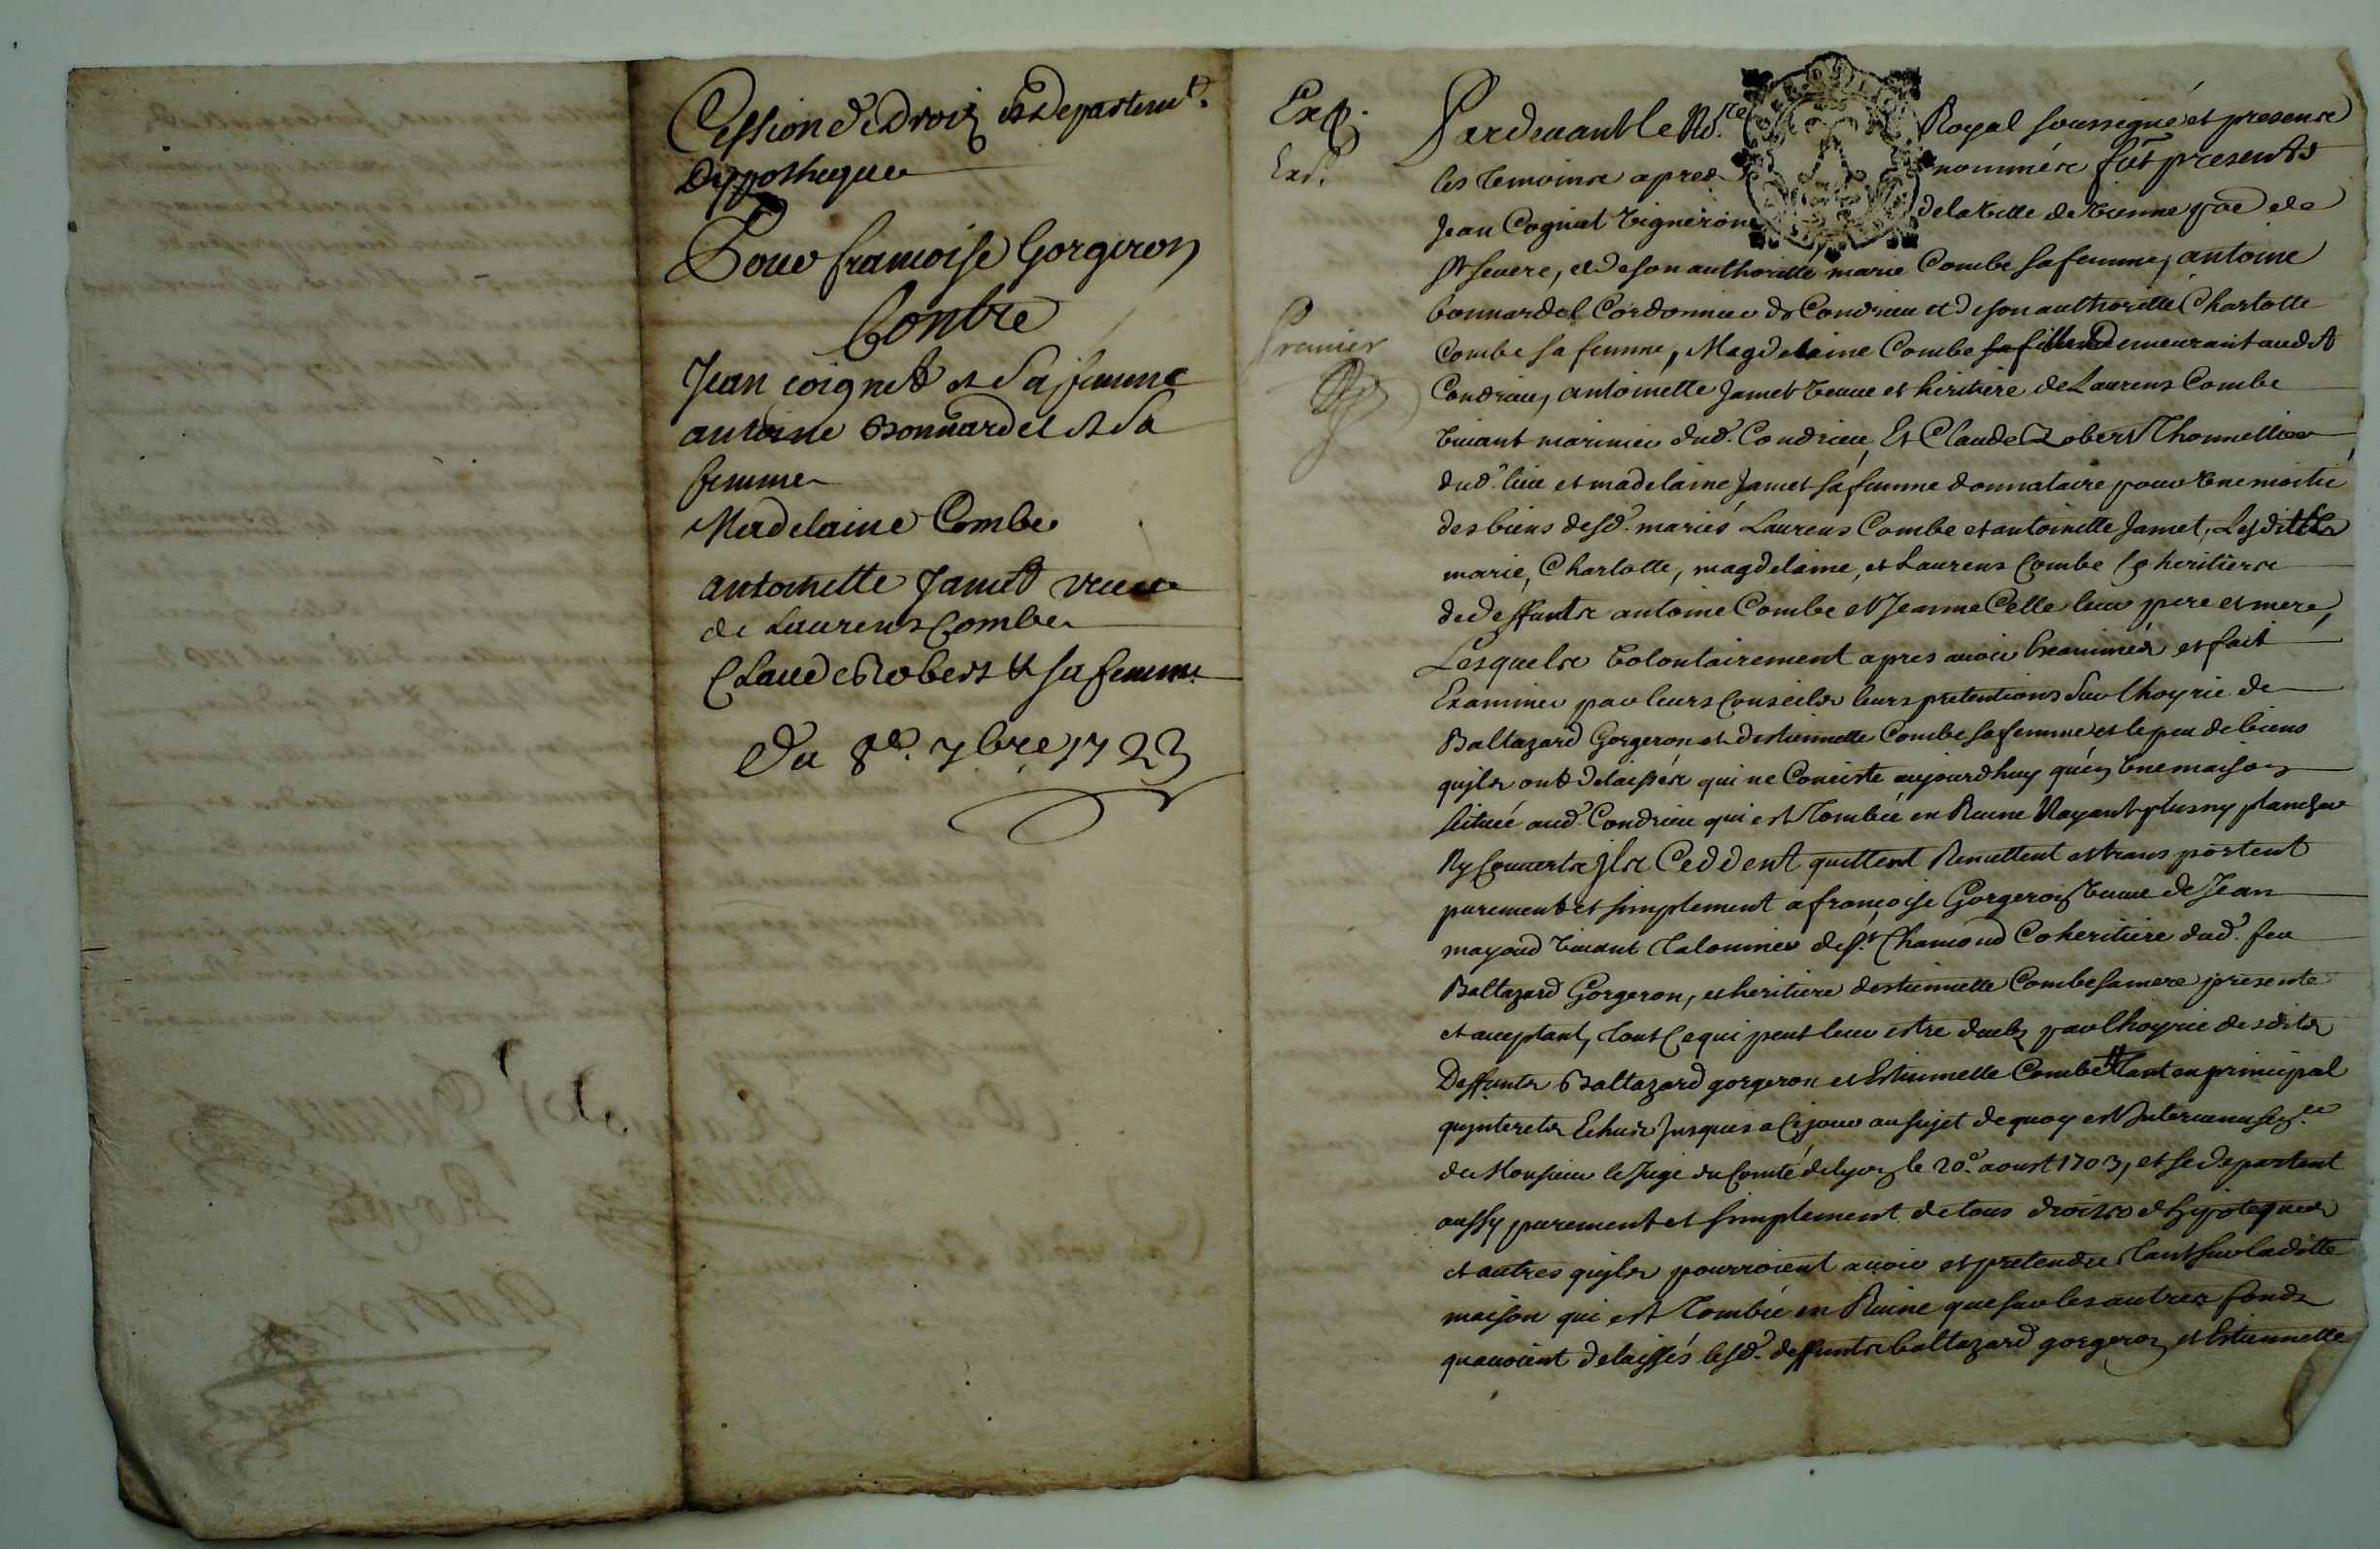 Cession de Droix et Departemt.
Dyppotheques
Pour francoise Gorgeron
Contre
Jean coignet et Sa femme
antoine Bonnardel et Sa
femme
Madelaine Combe
antoinette Jamet veuve
de Laurens Combe
Claude Robert & sa femme
Du 8e. 7bre 1723
Exp.
Ext.
Premier
Pardevant le No.re Royal soussigné et presence
les temoins apres nommés fut presents
Jean Cogniat vigneron de la ville de vienne poe de
St severe, et de son authorité marie Combe sa femme, antoine
bonnardel Cordonnier de Condrieu et de son authorité Charlotte
Combe sa femme, Magdelaine Combe sa fille Demeurant audit
Condrieu, antoinette Jamet veuve et heritiere de Laurens Combe
vivant marinier dud. Condrieu, Et Claude Robert Thonnellier
dud. lieu et madelaine Jamet sa femme donnataire pour une moitié
des biens desd. mariés Laurens Combe et antoinette Jamet, Lesdittes
marie, Charlotte, magdelaine, et Laurens Combe Coheritiers
de deffunts antoine Combe et Jeanne Celle leur pere et mere,
Lesquels volontairement apres avoir Examinés et fait
Examiner par leurs Conseils leurs pretentions Sur lhoyrie de
Baltazard Gorgeron et destiennette Combe sa femme et le peu de biens
quils ont delaissés qui ne Conciste aujourdhuy quen une maison
scituée aud. Condrieu qui est Tombée en Ruine Nayant plus ny plancher
Ny Couverts Ils Ceddent quittent Remettent et transportent
purement et simplement a françoise Gorgeron veuve de Jean
mayoud vivant talonnier de St. Chamond Coheritiere dud. feu
Baltazard Gorgeron, et heritiere destiennette Combe sa mere presente
et acceptant, tout Ce qui peut leur estre dueb par lhoyrie desdits
Deffunts Baltazard gorgeron et Estiennette Combe tant en principal
quinterets Echus Jusques a Ce jour au sujet de quoy est Intervenu sen.ce
de Monsieur le Juge du Comté de lyon le 20.e aoust 1703, et se departent
aussy purement et simplement de tous droits dhypoteques
et autres quils pourroient avoir et pretendre tant sur laditte
maison qui est Tombée en Ruine que sur les autres fonds
quavoient delaissés lesd. deffunts baltazard gorgeron et Estiennette